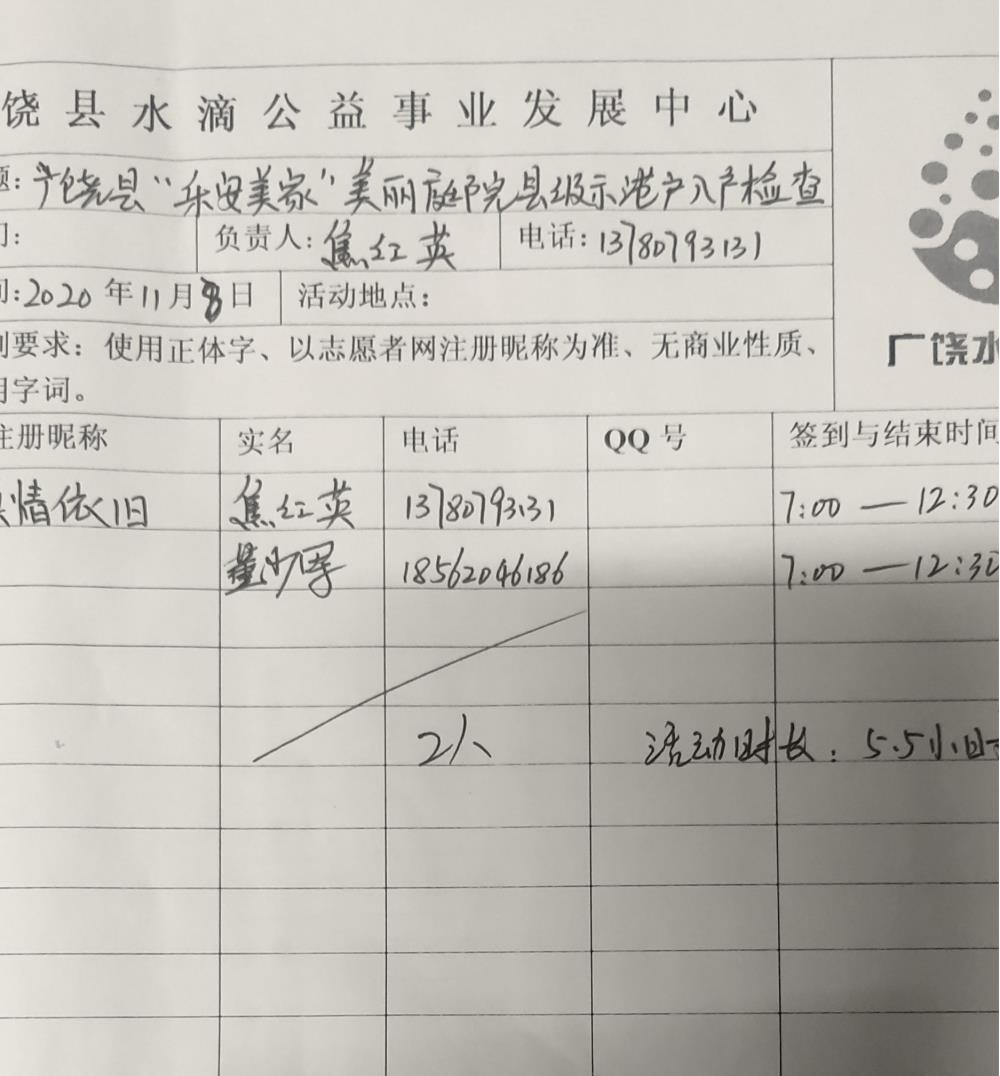 饶县水滴公益事业发展中心
题:广饶县“乐安美家”美丽庭院县级示范户入户检查
门: 负责人:焦红英 电话:13780793131
间:2020年11月8日 活动地点:
广饶水
别要求:使用正体字、以志愿者网注册昵称为准、无商业性质、
用字词。
注册昵称 实名 电话 QQ号 签到与结束时间
情依旧 焦红英 13780793131 7:00—12:30
董少军 18562046186 7:00—12:30
2人 活动时长:5.5小时